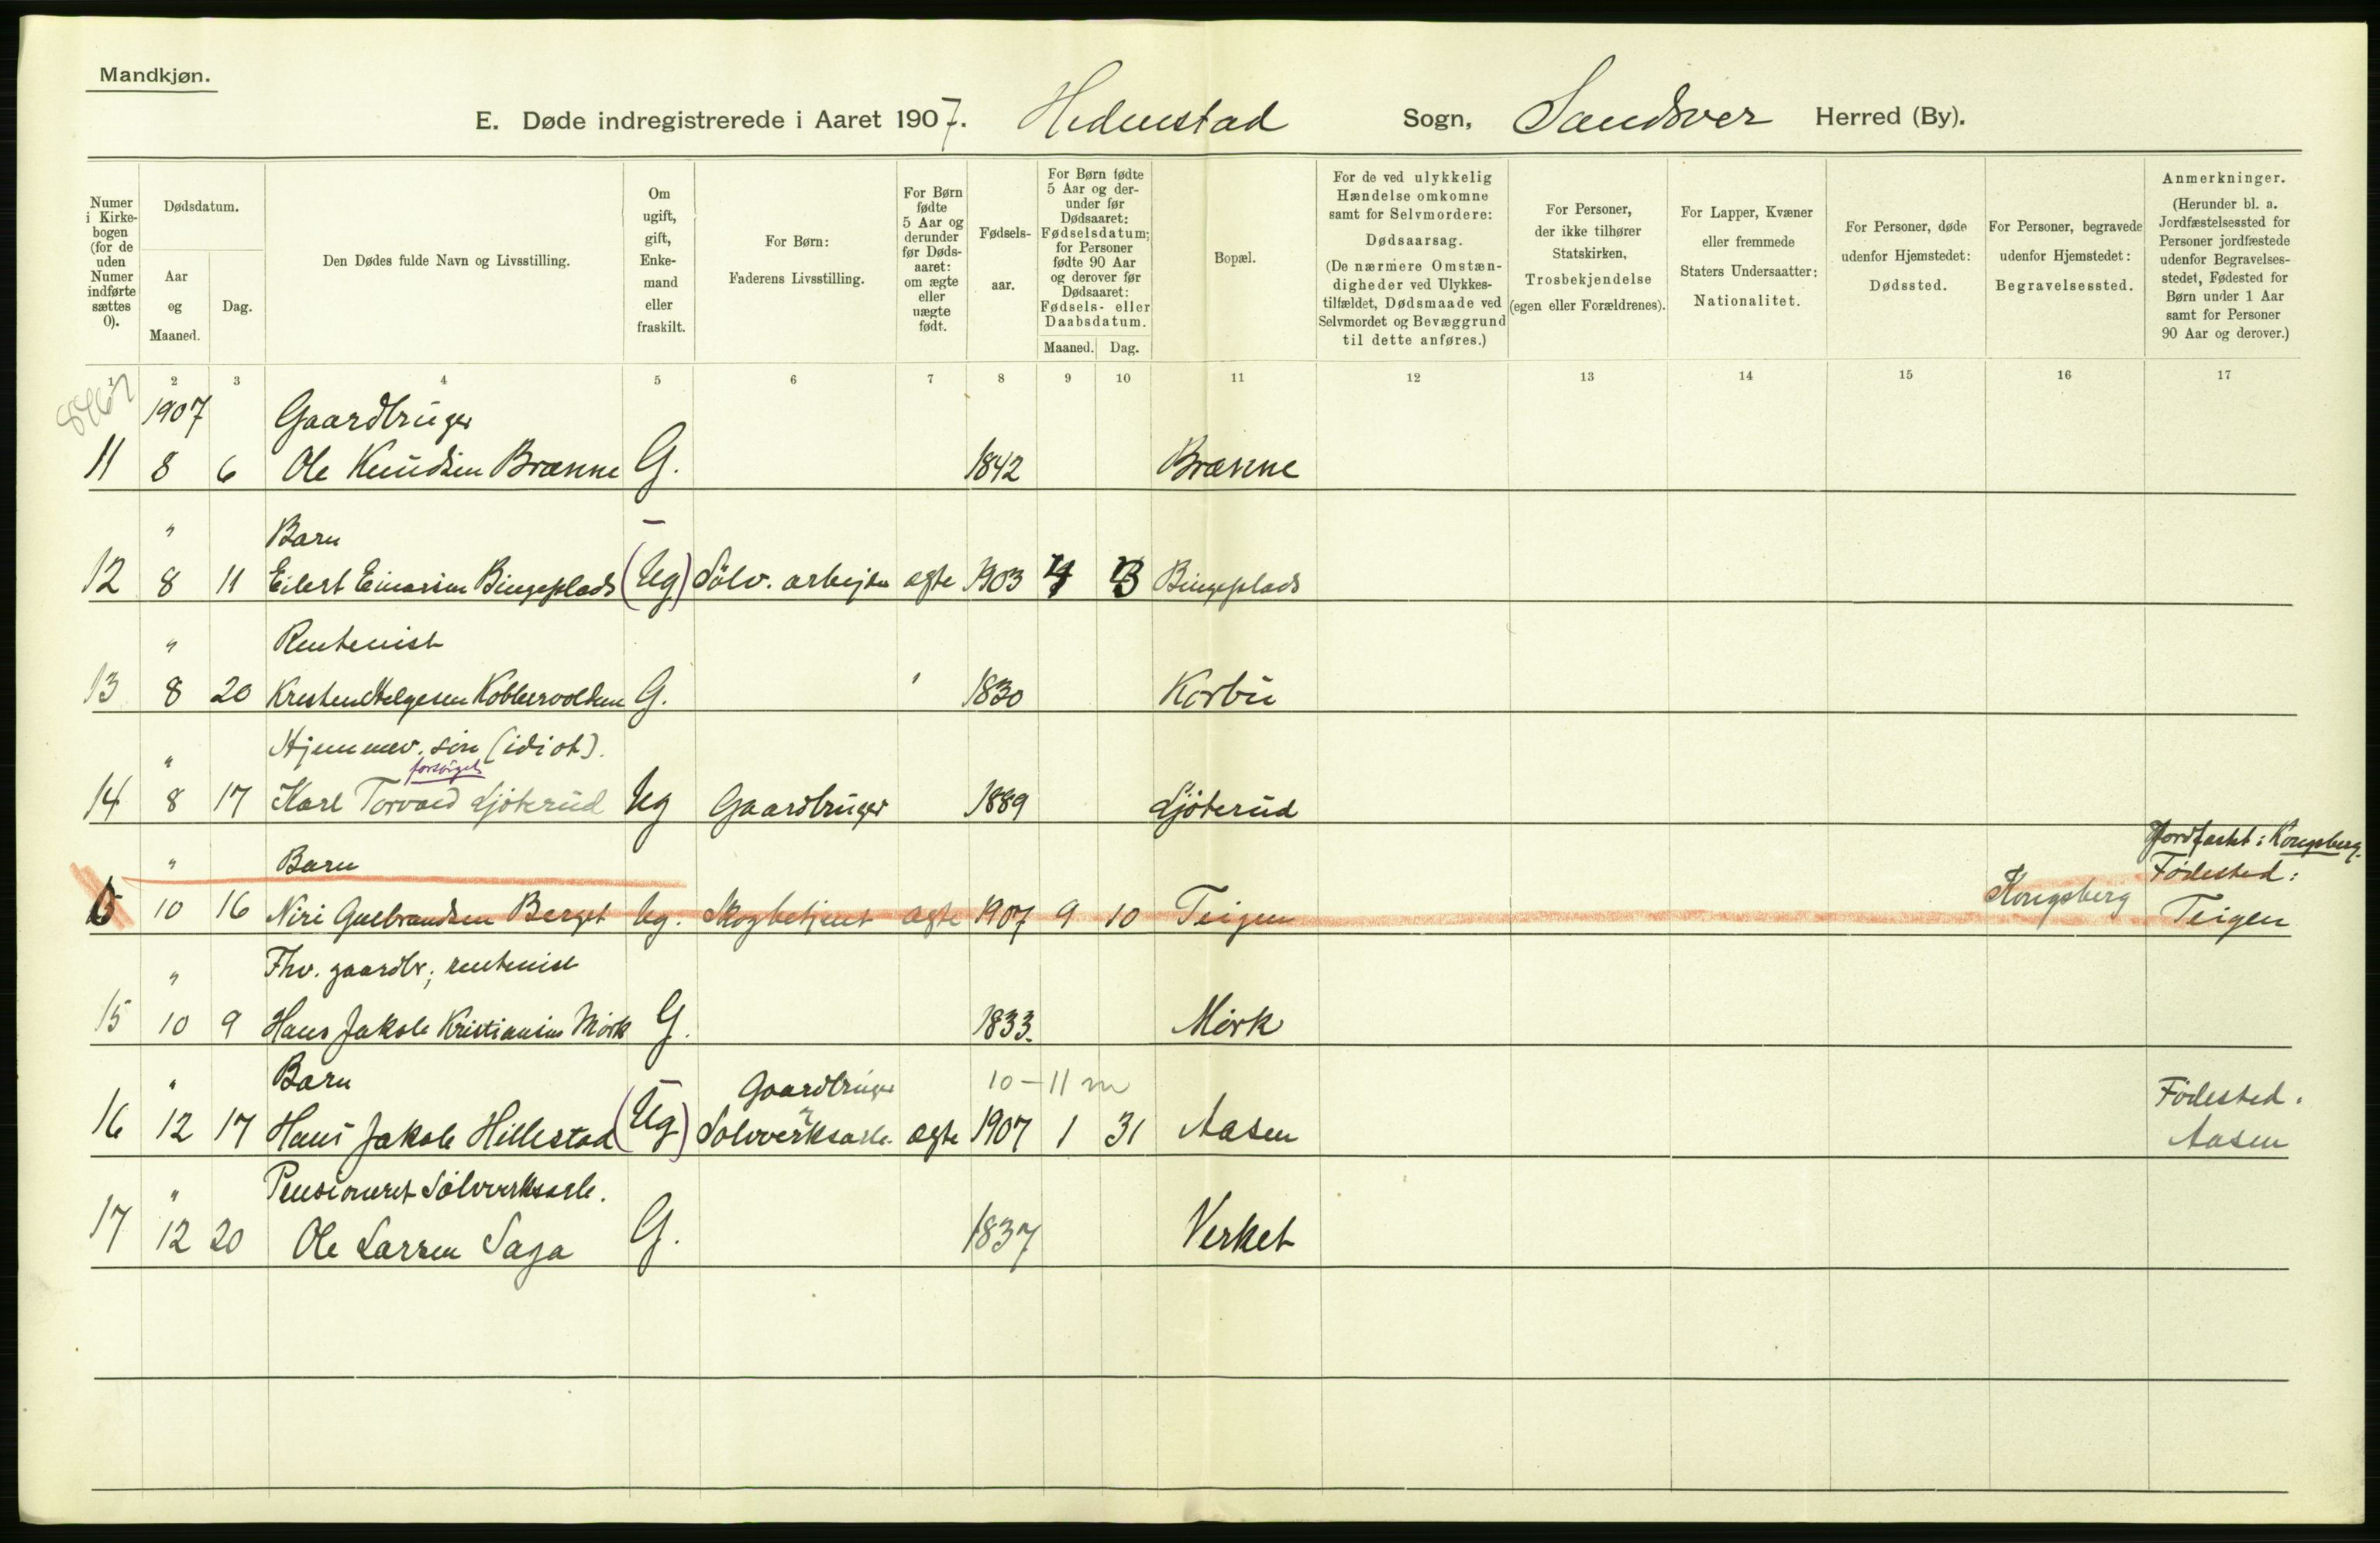 Mandkjøn.
E. Døde indregistrerede i Aaret 1907. Hedenstad Sogn, Sandsver Herred (By).
Numer i Kirkebogen (for de uden Numer indførte sættes 0).
Dødsdatum.
Aar og Maaned.
Dag.
Den Dødes fulde Navn og Livsstilling.
Om ugift, gift, Enkemand eller fraskilt.
For Børn: Faderens Livsstilling.
For Børn fødte 5 Aar og derunder før Dødsaaret: om ægte eller uægte født.
Fødselsaar.
For Børn fødte 5 Aar og derunder før Dødsaaret: Fødselsdatum; for Personer fødte 90 Aar og derover før Dødsaaret: Fødsels- eller Daabsdatum.
Maaned. Dag.
Bopæl.
For de ved ulykkelig Hændelse omkomne samt for Selvmordere: Dødsaarsag. (De nærmere Omstændigheder ved Ulykkestilfældet, Dødsmaade ved Selvmordet og Bevæggrund til dette anføres.)
For Personer, der ikke tilhører Statskirken, Trosbekjendelse (egen eller Forældrenes).
For Lapper, Kvæner eller fremmede Staters Undersaatter: Nationalitet.
For Personer, døde udenfor Hjemstedet: Dødssted.
For Personer, begravede udenfor Hjemstedet: Begravelsessted.
Anmerkninger. (Herunder bl. a. Jordfæstelsessted for Personer jordfæstede udenfor Begravelsesstedet, Fødested for Børn under 1 Aar samt for Personer 90 Aar og derover.)
1 2 3 4 5 6 7 8 9 10 11 12 13 14 15 16 17
1907 Gaardbruger
11 8 6 Ole Knudsen Brænne G. 1842 Brænne
" Barn
12 8 11 Eilert Einarsen Bingeplads (Ug) Sölv. arbejder ægte 1903 Bingeplads
" Rentenist
13 8 20 Kristen Helgesen Kobbervolden G. 1830 Korbu
" Hjemmev. sön (idiot).
forsörget
14 8 17 Karl Torvald Ljöterud Ug Gaardbruger 1889 Ljöterud
" Barn Jordfæstet: Kongsberg.
Födested:
15 10 16 Niri Gulbrandsen Berget Ug. Skogbetjent ægte 1907 9 10 Teigen Kongsberg Teigen
" Fhv. gaardbr, rentenist
15 10 9 Hans Jakob Kristiansen Mörk G. 1833. Mörk
" Barn Gaardbruger 10-11 m Födested.
16 12 17 Hans Jakob Hillestad (Ug) Sölvverksarb. ægte 1907 1 31 Aasen Aasen
" Pensioneret Sölvverksarb.
17 12 20 Ole Larsen Saga G. 1837 Verket